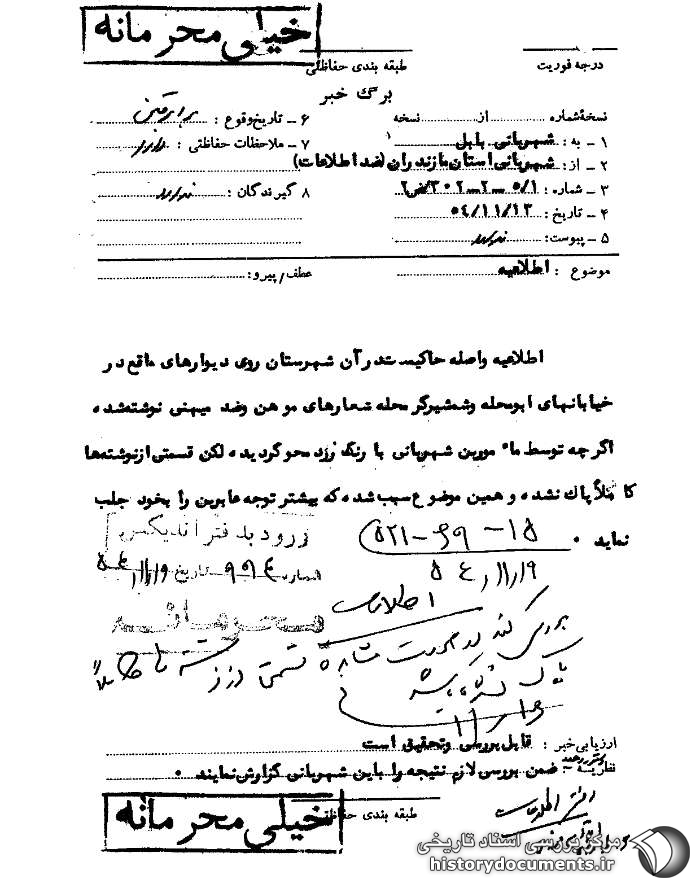 خیلی محرمانه
درجه فوریت
طبقه بندی حفاظتی
برگ خبر
نسخهٔ شماره ........ از ........ نسخه
۱ – به : شهربانی بابل
۲ – از : شهربانی استان مازندران (ضد اطلاعات)
۳ – شماره : ۵/۱ – ۲ – ۳۰۲/ض۲
۴ – تاریخ : ۵۴/۱۱/۱۳
۵ – پیوست : ندارد
۶ – تاریخ وقوع :
۷ – ملاحظات حفاظتی : ندارد
۸ گیرندگان : ندارد
موضوع : اطلاعیه
عطف/پیرو:
اطلاعیه واصله حاکیست در آن شهرستان روی دیوارهای واقع در
خیابانهای ابومحله و شمشیرگر محله شعارهای موهن و ضد میهنی نوشته شده
اگر چه توسط مامورین شهربانی با رنگ زرد محو گردیده لکن قسمتی از نوشته‌ها
کاملاً پاک نشده و همین موضوع سبب شده که بیشتر توجه عابرین را بخود جلب
نماید .
ورود بدفتر اندیکس
شماره ۹۹۴ تاریخ ۵۴/۱۱/۱۹
۵۲۱-۶۹-۱۵
۵۴/۱۱/۱۹
محرمانه
اطلاعات
بررسی کنید در صورت مشاهده قسمتی از نوشته‌ها کاملاً
پاک نشده
ارزیابی خبر : قابل بررسی و تحقیق است
نظریه : ضمن بررسی لازم نتیجه را باین شهربانی گزارش نمایند .
طبقه بندی حفاظتی
خیلی محرمانه
دفتر اطلاعات
مرکز بررسی اسناد تاریخی
historydocuments.ir